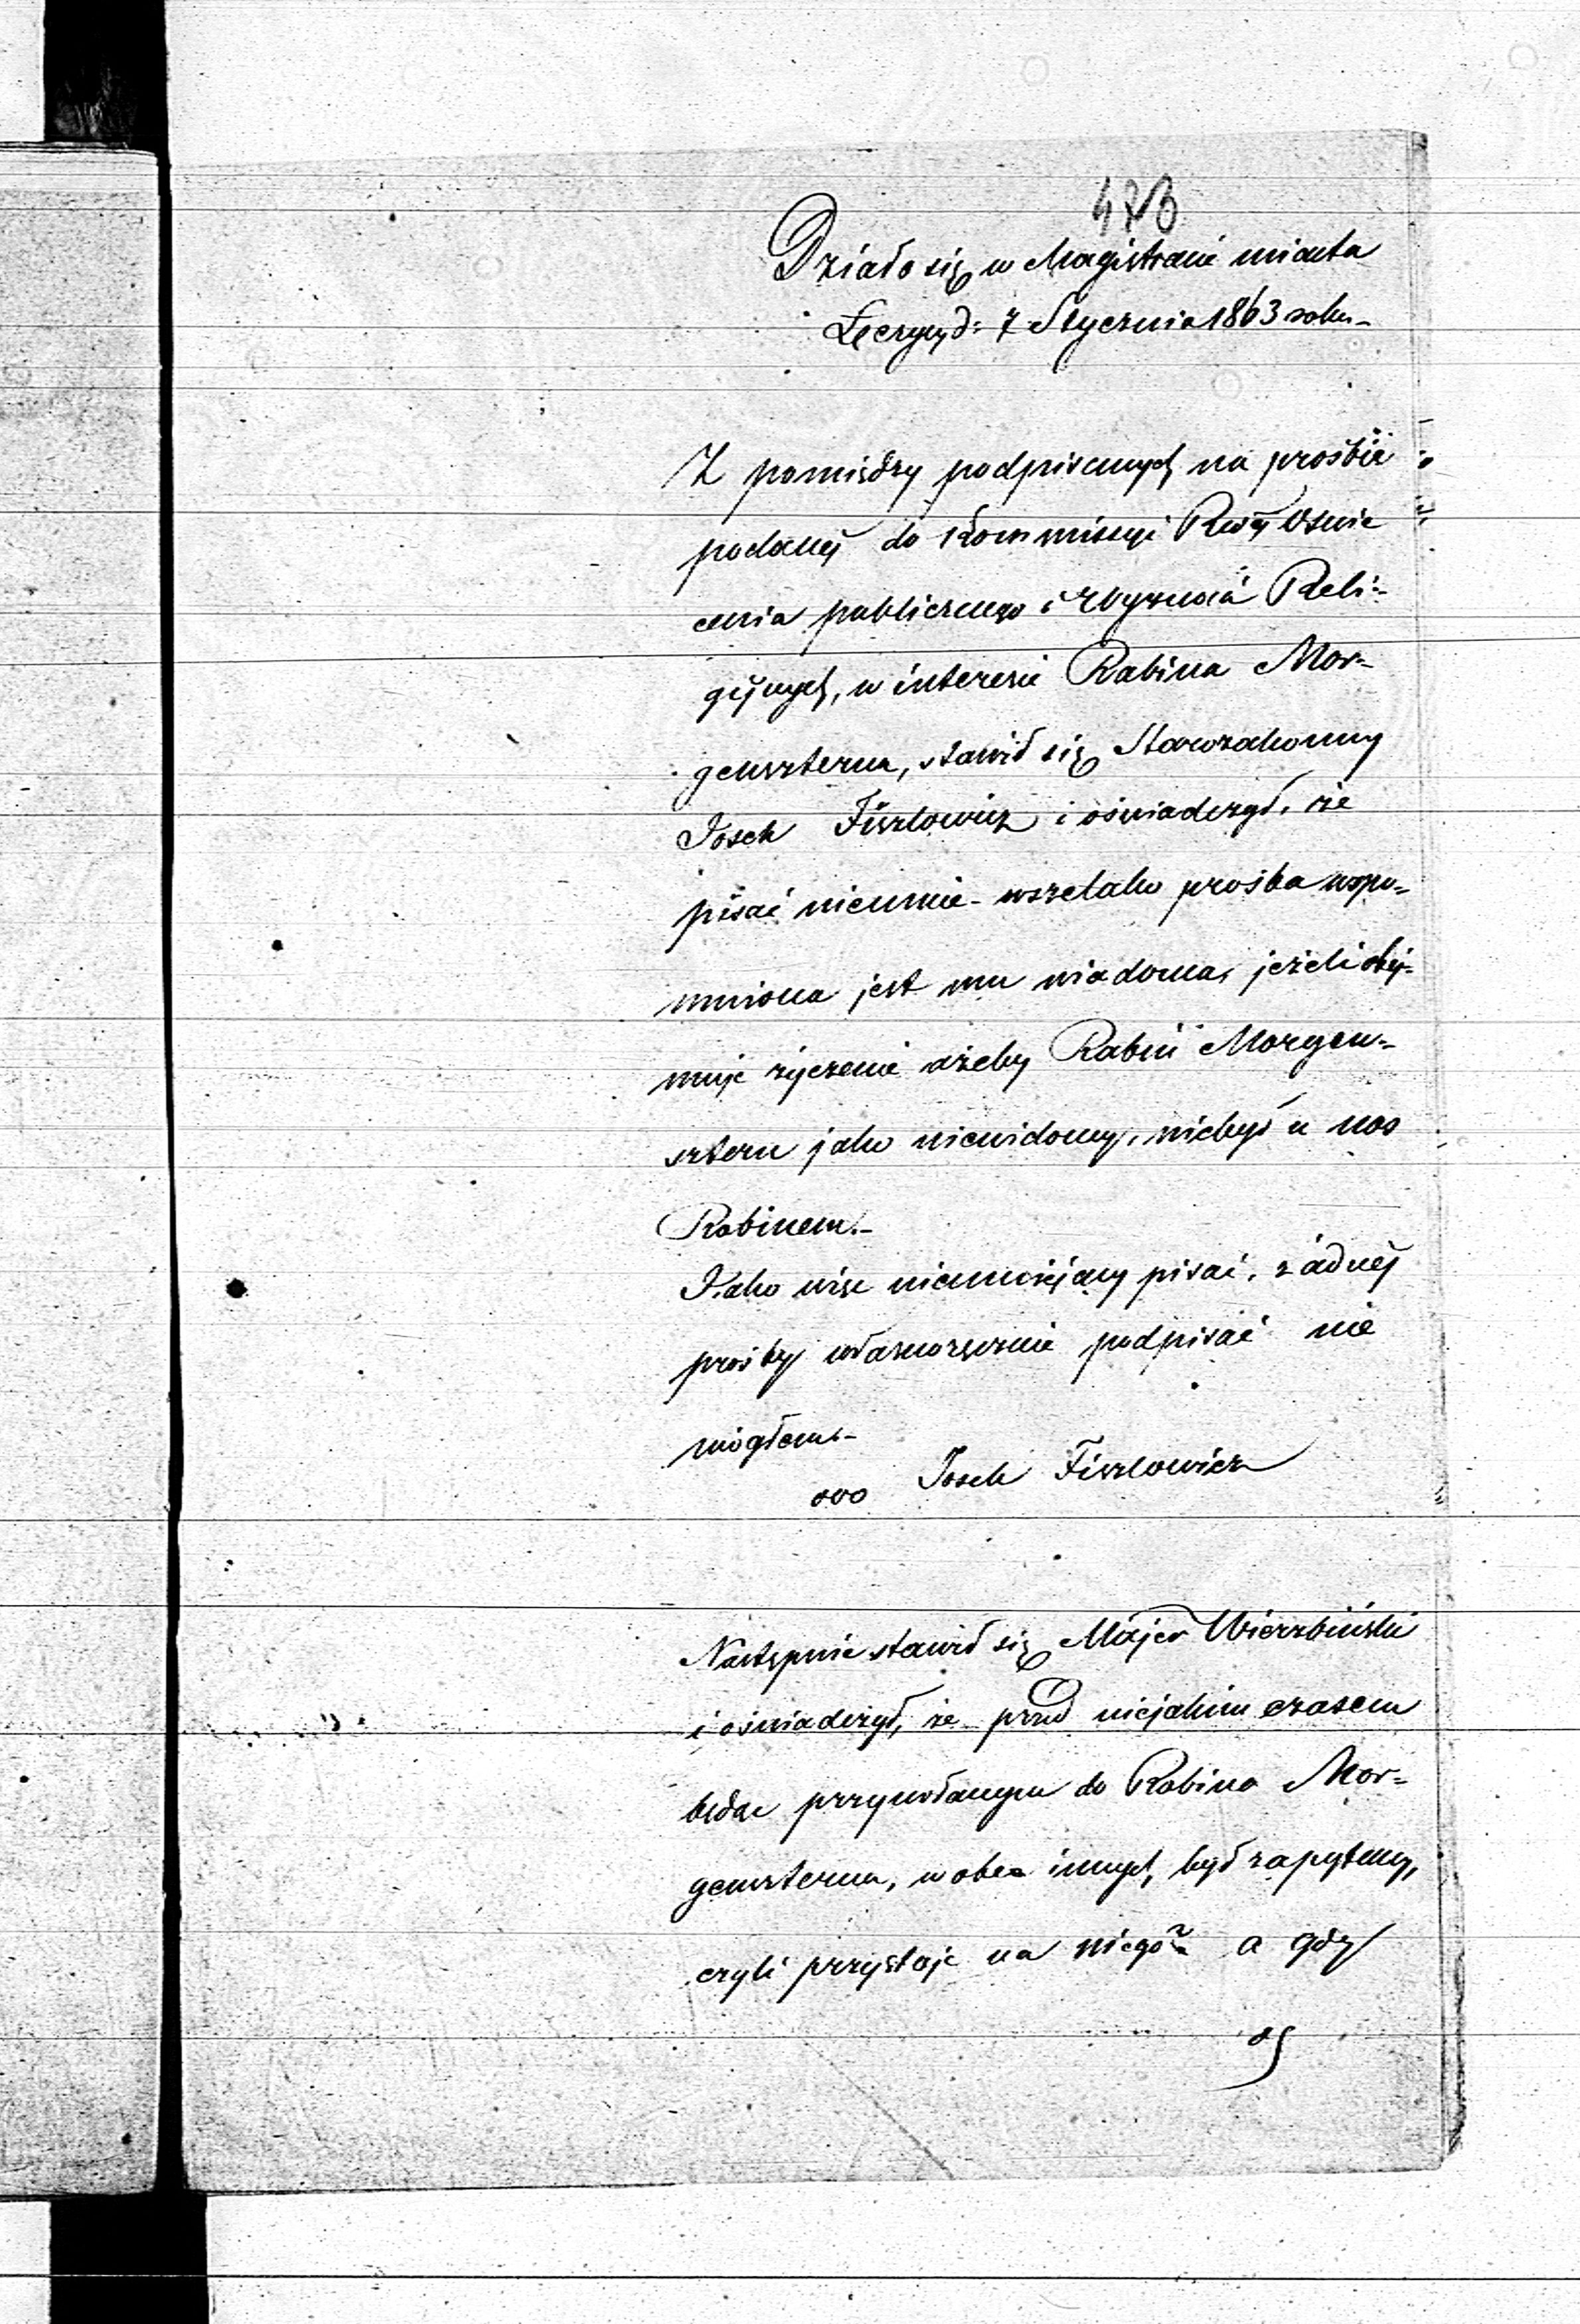 478
Działo się w Magistracie miasta
Łęczycy d: 7 Stycznia 1863 roku-
Z pomiędzy podpisanych na prośbie
podanej do Kommissyi Rząj Oswie
cenia publicznego i Wyznań Reli:-
gijnych, w interesie Rabina Mor-
gensterna, stawił się Starozakonny
Josek Fiszlowicz i oświadczył, że
pisać nieumie- wszelako prośba wspo-
mniona jest mu wiadoma, jeżeli obej-
muje życzenie ażeby Rabin Morgen-
sztern jako niewidomy, niebył u nas
Rabinem.-
Jako więc nieumiejący pisać, żadnej
prośby własnoręcznie podpisać nie
mogłem.-
ooo Josek Fiszlowicz
Następnie stawił się Majer Wierzbiński
i oświadczył, że przed niejakim czasem
będąc przywołanym do Rabina Mor-
gensterna, wobec innych, był zapytany,
czyli przystaje na niego? a gdy